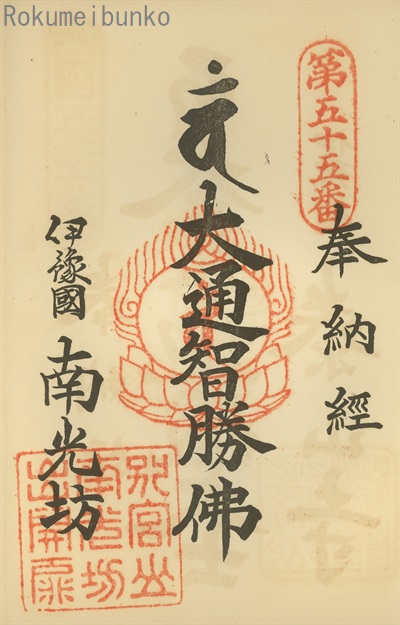 Rokumeibunko
第五十五番
奉納経
大通智勝佛
伊豫國
南光坊
別宮山
南光坊